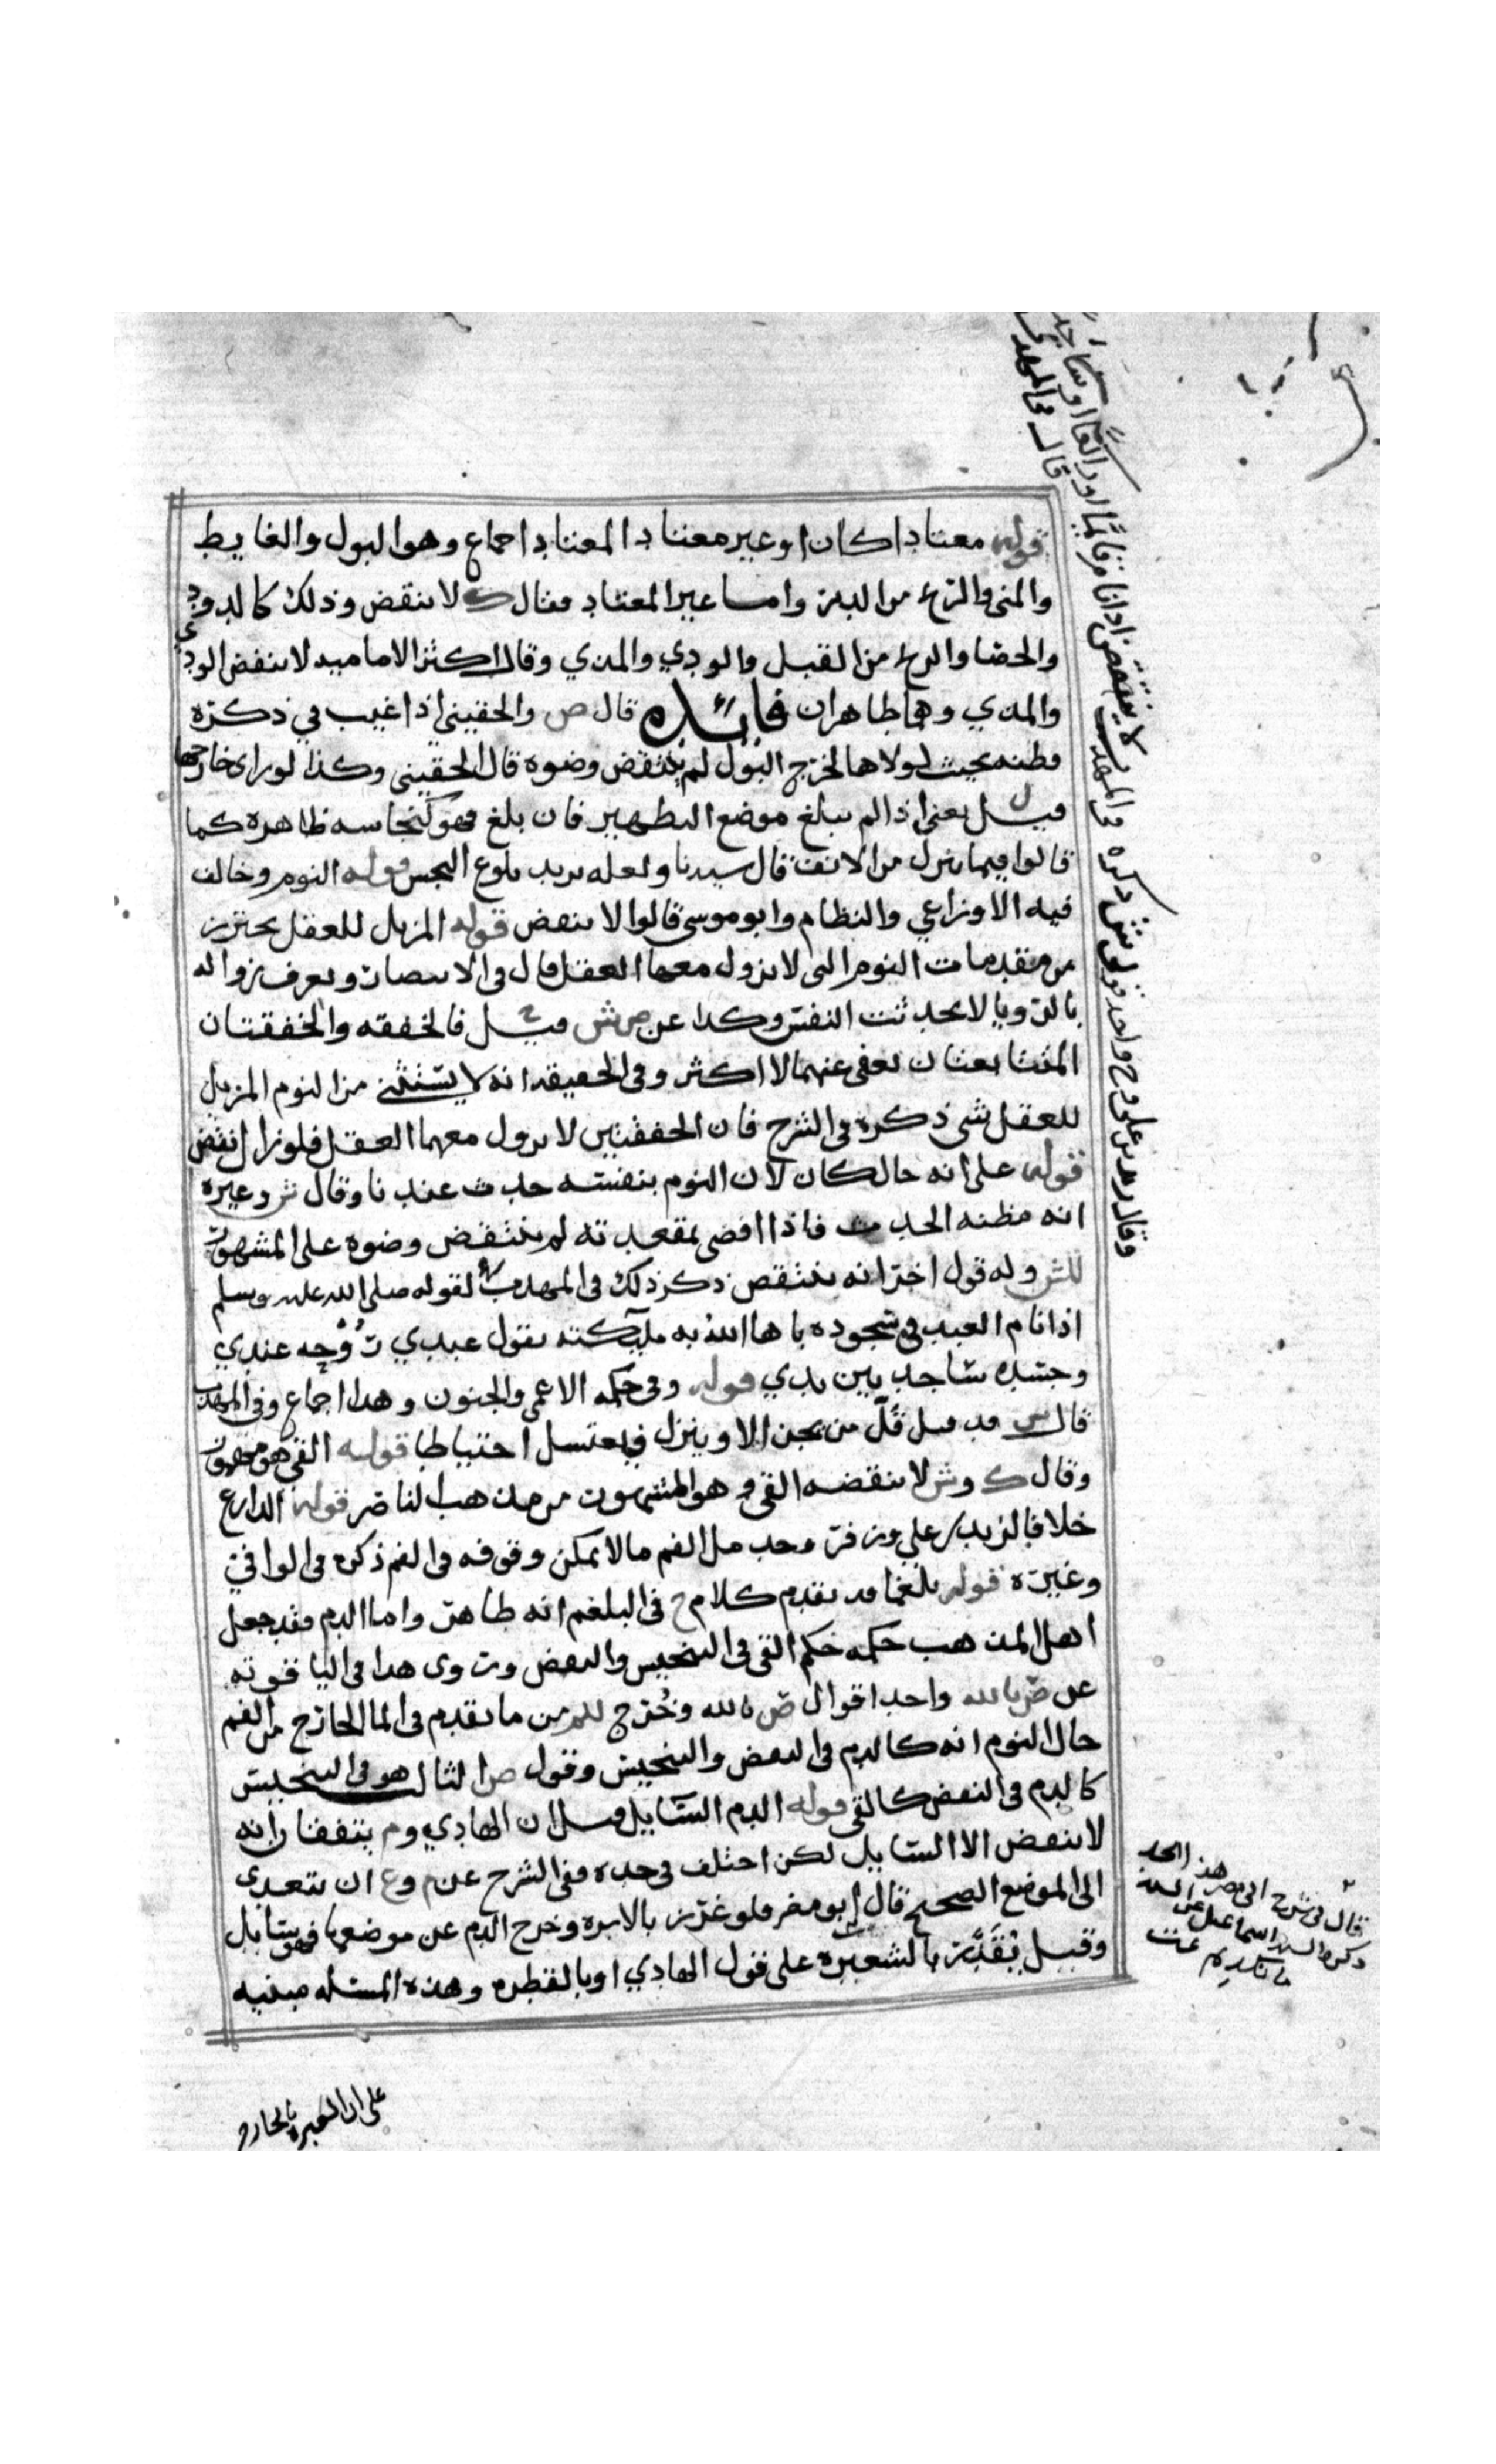 قوله معتادا كان او غير معتاد المعتاد اجماع وهو البول والغايط
والمني والريح من الدبر واما غير المعتاد فقال ك لا ينقض وذلك كالدود
والحصا والريح من القبل والودي والمذي وقال اكثر الاماميه لا ينقض الودي
والمذي وهما طاهران فائده قال ص والحقيني اذا غيب في ذكره
قطنه بحيث لولاها لخرج البول لم ينتقض وضوه قال الحقيني وكذا لو راى خارجها
قيل يعني اذا لم يبلغ موضع التطهير فان بلغ فهو كنجاسه ظاهره كما
قالوا فيما ينزل من الانف قال سيدنا ولعله يريد بلوغ النجس قوله النوم وخالف
فيه الاوزاعي والنظام وابو موسى قالوا لا ينقض قوله المزيل للعقل يحترز
من مقدمات النوم التي لا يزول معها العقل قال في الانتصار ويعرف زواله
بالرويا لا بحديث النفس وكذا عن ص ش قيل ح فالخفقه والخفقتان
المتتابعتان يعفى عنهما لا اكثر وفي الحقيقه انه لا يستثنى من النوم المزيل
للعقل شي ذكره في الشرح فان الخفقتين لا يزول معهما العقل فلو زال انتقض
قوله على انه حال كان لان النوم بنفسه حدث عندنا وقال ش وغيره
انه مظنه الحدث فاذا افضى بمقعدته لم ينتقض وضوه على المشهور
للش وله قول اخر انه ينتقض ذكر ذلك في المهذب لقوله صلى الله عليه وسلم
اذا نام العبد في سجوده باها الله به ملائكته يقول عبدي روحه عندي
وجسده ساجد بين يدي قوله وفي حكمه الاغمى والجنون وهذا اجماع وفي المهذب
قال ش قد قيل قل من يجن الا وينزل فيغتسل احتياطا قوله القي هو مهموز
وقال ك وش لا ينقضه القي وهو المشهور من مذهب الناصر قوله الدارع
خلافا لزيد بن علي وزفر وحد مل الفم ما لا يمكن وقوفه في الفم ذكره في الوافي
وغيره قوله بلغما قد تقدم كلام ح في البلغم انه طاهر واما الدم فقد جعل
اهل المذهب حكمه حكم القي في التنجيس والنقض وروى هذا في الياقوته
عن ص بالله واحد اقوال ص بالله وخرج للم من ما تقدم في الما الخارج من الفم
حال النوم انه كالدم في النقض والتنجيس وقول ص الثالث هو في التنجيس
كالدم في النقض كالقي قوله الدم السايل قيل ان الهادي وم يتفقان انه
لا ينقض الا السايل لكن اختلف في حده ففي الشرح عن م وع ان يتعدى
الى الموضع الصحيح قال ابو مضر فلو غرز بالابره وخرج الدم عن موضعها فهو سايل
وقيل يقدر بالشعيره على قول الهادي او بالقطره وهذه المسئله مبنيه
على ان الشعيره بالحارم
وقال زيد بن علي وح واحد قولي ش ذكره في المهذب لا ينتقض اذا نام قائما او راكعا او ساجدا
قال في المهذب
قال في شرح ابي مضر هذا الحد
ذكره السيد اسماعيل عن السيد